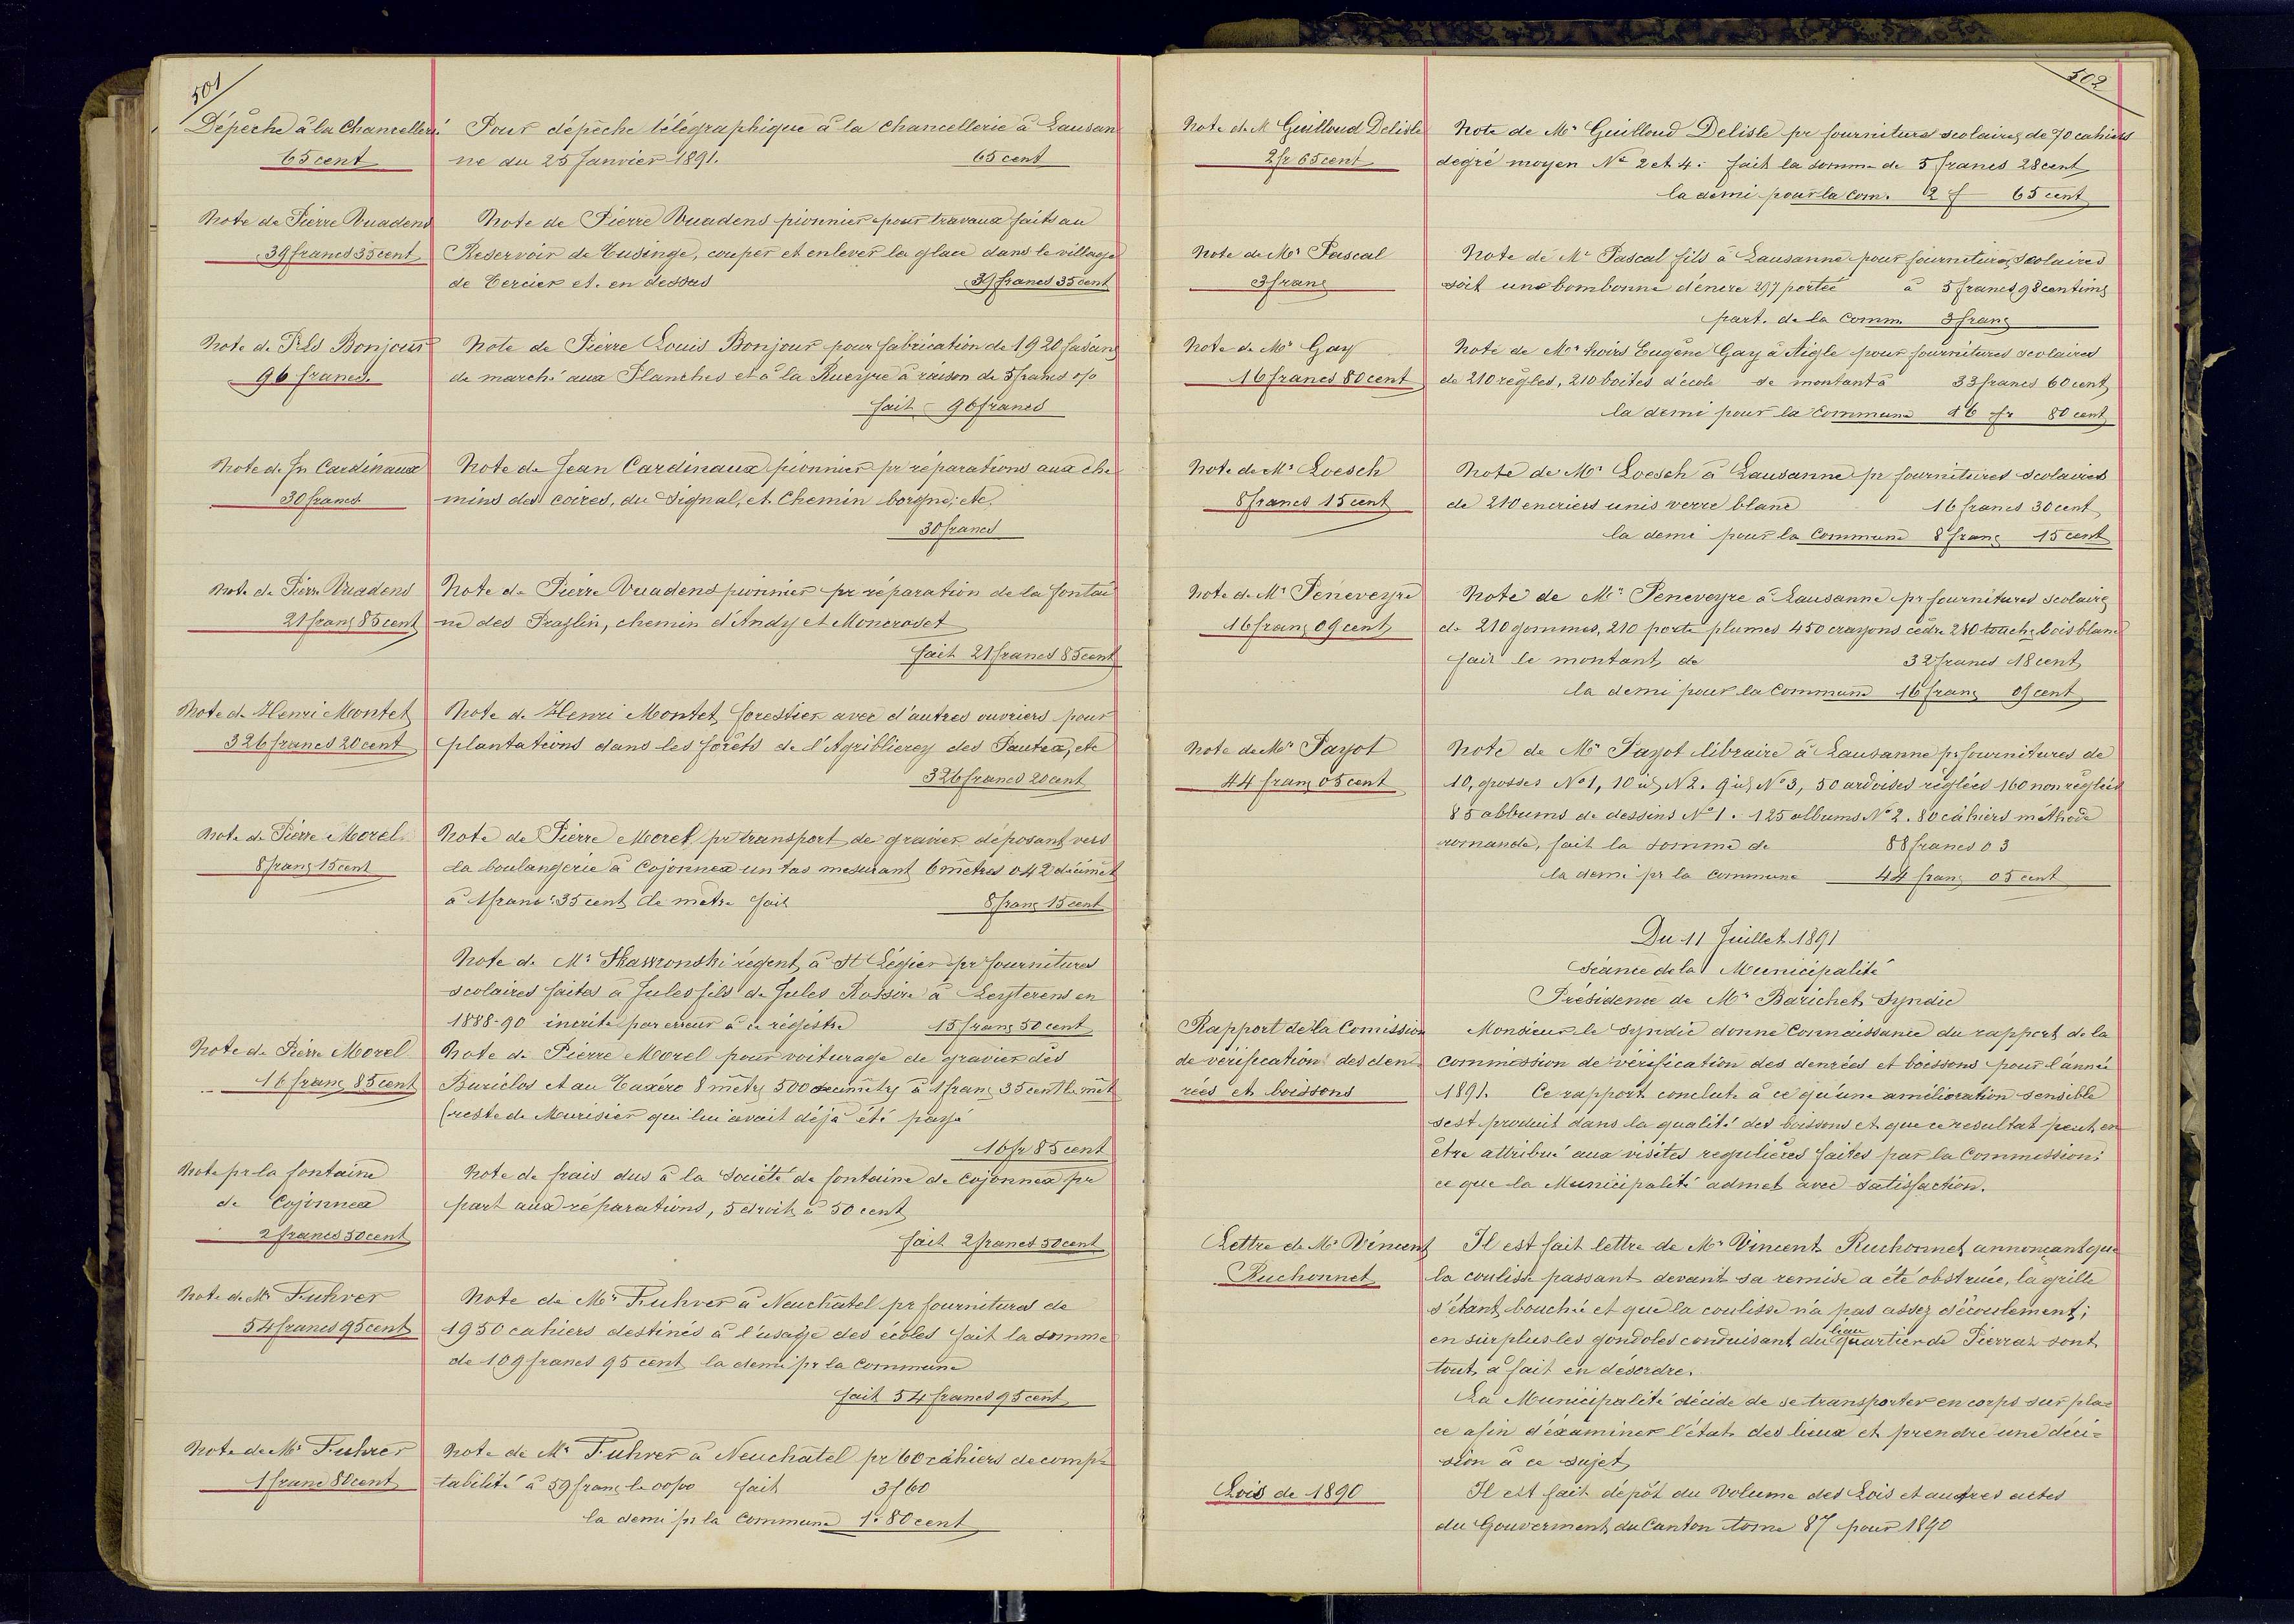 501
Dépêche à la Chancellerie
65 cent
Pour dépêche télégraphique à la chancellerie à Lausan
ne du 25 Janvier 1891. 65 cent
Note de Pierre Vuadens
39 francs 35 cent
Note de Pierre Vuadens pionnier pour travaux faits au
Reservoir de Tusinge, couper et enlever la glace dans le village
de Tercier et en dessus 39 francs 35 cent
Note de P. Ls Bonjour
96 francs.
Note de Pierre Louis Bonjour pour fabrication de 1920 fasçins
de marché aux Planches et à la Rueyre à raison de 5 francs o/o
fait 96 francs
Note de Jn Cardinaux
30 francs
Note de Jean Cardinaux pionnier pr réparations aux che
mins des coires, du Signal, et Chemin borgne, etc.
30 francs
Note de Pierre Vuadens
21 francs 85 cent
Note de Pierre Vuadens pionnier pr réparation de la fontai
ne des Praslin, chemin d'Andy et Moncroset
fait 21 francs 85 cent
Note de Henri Montet
326 francs 20 cent
Note de Henri Montet, forestier avec d'autres ouvriers pour
plantations dans les forêts de l'Agriblierey des Pautex, etc
326 francs 20 cent
Note de Pierre Morel
8 francs 15 cent
Note de Pierre Morel pr transport de gravier déposant vers
la boulangerie à Cojonnex un tas mesurant 6 mètres 042 décimèt
à 1 franc: 35 cent le mètre fait 8 francs 15 cent
Note de Mr régent à St Légier pr fournitures
scolaires faites à Jules fils de Jules Rossire à Leyterens en
1888-90 incrite par erreur à ce régistre 15 francs 50 cent
Note de Pierre Morel
16 francs 85 cent
Note de Pierre Morel pour voiturage de gravier dès
Buriclos et au Taxéro 8 mètrs 500 decimètrs à 1 franc 35 cent le mèt
(reste de Murisier qui lui avait déjà été payé
16 fr 85 cent
Note pr la fontaine
de Cojonnex
2 francs 50 cent
Note de frais dus à la Société de fontaine de Cojonnex pr
part aux réparations, 5 droits à 50 cent
fait 2 francs 50 cent
Note de Mr Fuhrer
54 francs 95 cent
Note de Mr Fuhrer à Neuchatel pr fournitures de
1950 cahiers destinés à l'usage des écoles fait la somme
de 109 francs 95 cent la demi pr la Commune
fait 54 francs 95 cent
Note de Mr Fuhrer
1 franc 80 cent
Note de Mr Fuhrer à Neuchatel pr 60 cahiers de comp=
tabilité à 59 francs le 00/00 fait 3f 60
la demi pr la Commune 1. 80 cent
502
Note de M Guilloud Delisle
2 fr 65 cent
Note de Mr Guilloud Delisle pr fournitures scolaires de 70 cahiers
degré moyen No 2 et 4. fait la somme de 5 francs 28 cent
la demi pour la com. 2 f 65 cent
Note de Mr Pascal
3 francs
Note de Mr Pascal fils à Lausanne pour fournitures scolaires
soit une bombonne d'encre 297 portée à 5 francs 98 centims
part. de la Comm. 3 francs
Note de Mr Gay
16 francs 80 cent
Note de Mr hoirs Eugène Gay à Aigle pour fournitures scolaires
de 210 règles, 210 boites d'école se montant à 33 francs 60 cent
la demi pour la Commune 16 fr 80 cent
Note de Mr Loesch
8 francs 15 cent
Note de Mr Loesch à Lausanne pr fournitures scolaires
de 210 encriers unis verre blanc 16 francs 30 cent
la demi pour la Commune 8 francs 15 cent
Note de Mr Peneveyre
16 francs 09 cent
Note de Mr Peneveyre à Lausanne pr fournitures scolaires
de 210 gommes, 210 porte plumes 450 crayons cèdre 280 touchs bois blanc
fait le montant de 32 francs 18 cent
la demi pour la Commune 16 francs 09 cent
Note de Mr Payot
44 francs 05 cent
Note de Mr Payot libraire à Lausanne pr fournitures de
10, grosses No 1, 10 id N 2. 9 id No 3, 50 ardoises réglées 160 non réglées
85 albums de dessins No 1. 125 albums No 2. 80 cahiers méthode
romande, fait la somme de 88 francs 03
la demi pr la commune 44 francs 05 cent
Du 11 Juillet 1891
Séance de la Municipalité
Présidence de Mr Barichet, Syndic
Rapport de la Comission
de vérification des den
rées et boissons
Monsieur le Syndic donne Connaissance du rapport de la
commission de vérification des denrées et boissons pour l'année
1891. Ce rapport conclut à ce qu'une amélioration sensible
s'est produit dans la qualité des boissons et que ce resultat peut en
être attribué aux visites regulières faites par la Commission;
ce que la Municipalité admet avec satisfaction.
Lettre de Mr Vincent
Ruchonnet
Il est fait lettre de Mr Vincent Ruchonnet annonçant que
la coulisse passant devant sa remise a été obstruée, la grille
s'étant bouchée et que la coulisse n'a pas assez d'écoulement;
en surplus les gondoles conduisant du quartier de Pierraz sont
tout à fait en désordre.
La Municipalité décide de se transporter en corps sur pla=
ce afin d'éxaminer l'état des lieux et prendre une déci=
sion à ce sujet
Lois de 1890
Il est fait dépôt du Volume des Lois et autres actes
du Gouverment du Canton tome 87 pour 1890